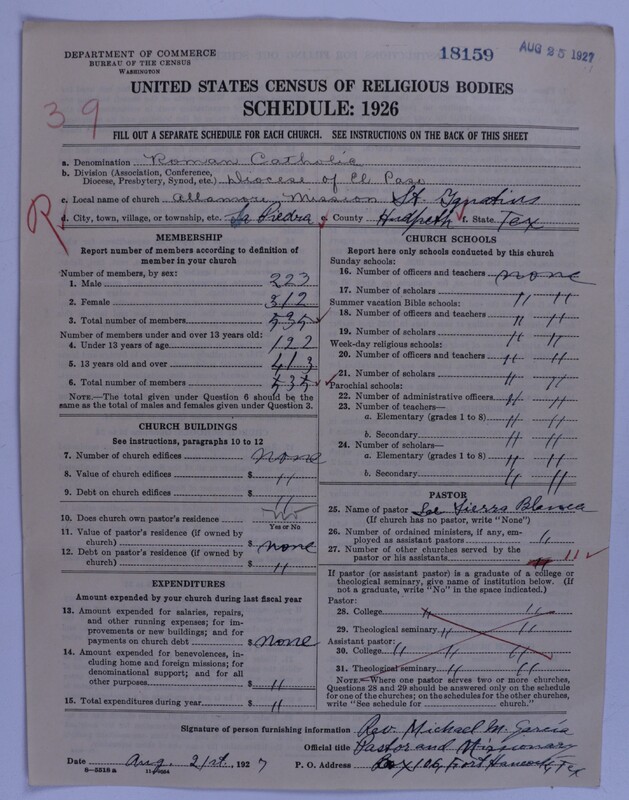 DEPARTMENT OF COMMERCE
BUREAU OF THE CENSUS
WASHINGTON
18159
AUG 25 1927
39
UNITED STATES CENSUS OF RELIGIOUS BODIES
SCHEDULE: 1926
FILL OUT A SEPARATE SCHEDULE FOR EACH CHURCH. SEE INSTRUCTIONS ON THE BACK OF THIS SHEET
a. Denomination Roman Catholic
b. Division (Association, Conference,
Diocese, Presbytery, Synod, etc.) Diocese of El Paso
c. Local name of church Allamore Mission St. Ignatius
R
d. City, town, village, or township, etc. La Piedra e. County Hudpeth f. State Tex
MEMBERSHIP
Report number of members according to definition of
member in your church
Number of members, by sex:
1. Male 223
2. Female 312
3. Total number of members 535
Number of members under and over 13 years old:
4. Under 13 years of age 122
5. 13 years old and over 413
6. Total number of members 535
NOTE.—The total given under Question 6 should be the
same as the total of males and females given under Question 3.
CHURCH BUILDINGS
See instructions, paragraphs 10 to 12
7. Number of church edifices none
8. Value of church edifices $ "
9. Debt on church edifices $ "
10. Does church own pastor's residence No
Yes or No
11. Value of pastor's residence (if owned by
church) $ none
12. Debt on pastor's residence (if owned by
church) $ "
EXPENDITURES
Amount expended by your church during last fiscal year
13. Amount expended for salaries, repairs,
and other running expenses; for im-
provements or new buildings; and for
payments on church debt $ none
14. Amount expended for benevolences, in-
cluding home and foreign missions; for
denominational support; and for all
other purposes $ "
15. Total expenditures during year $ "
CHURCH SCHOOLS
Report here only schools conducted by this church
Sunday schools:
16. Number of officers and teachers none
17. Number of scholars " "
Summer vacation Bible schools:
18. Number of officers and teachers " "
19. Number of scholars " "
Week-day religious schools:
20. Number of officers and teachers " "
21. Number of scholars " "
Parochial schools:
22. Number of administrative officers " "
23. Number of teachers—
a. Elementary (grades 1 to 8) " "
b. Secondary " "
24. Number of scholars—
a. Elementary (grades 1 to 8) " "
b. Secondary " "
PASTOR
25. Name of pastor See Sierra Blanca
(If church has no pastor, write "None")
26. Number of ordained ministers, if any, em-
ployed as assistant pastors "
27. Number of other churches served by the
pastor or his assistants 11
If pastor (or assistant pastor) is a graduate of a college or
theological seminary, give name of institution below. (If
not a graduate, write "No" in the space indicated.)
Pastor:
28. College " "
29. Theological seminary " "
Assistant pastor:
30. College " " "
31. Theological seminary " "
NOTE.—Where one pastor serves two or more churches,
Questions 28 and 29 should be answered only on the schedule
for one of the churches; on the schedules for the other churches,
write "See schedule for church."
Signature of person furnishing information Rev. Michael M. Garcia
Official title Pastor and Missionary
Date Aug. 21st, 1927 P. O. Address Box 106, Fort Hancock, Tex